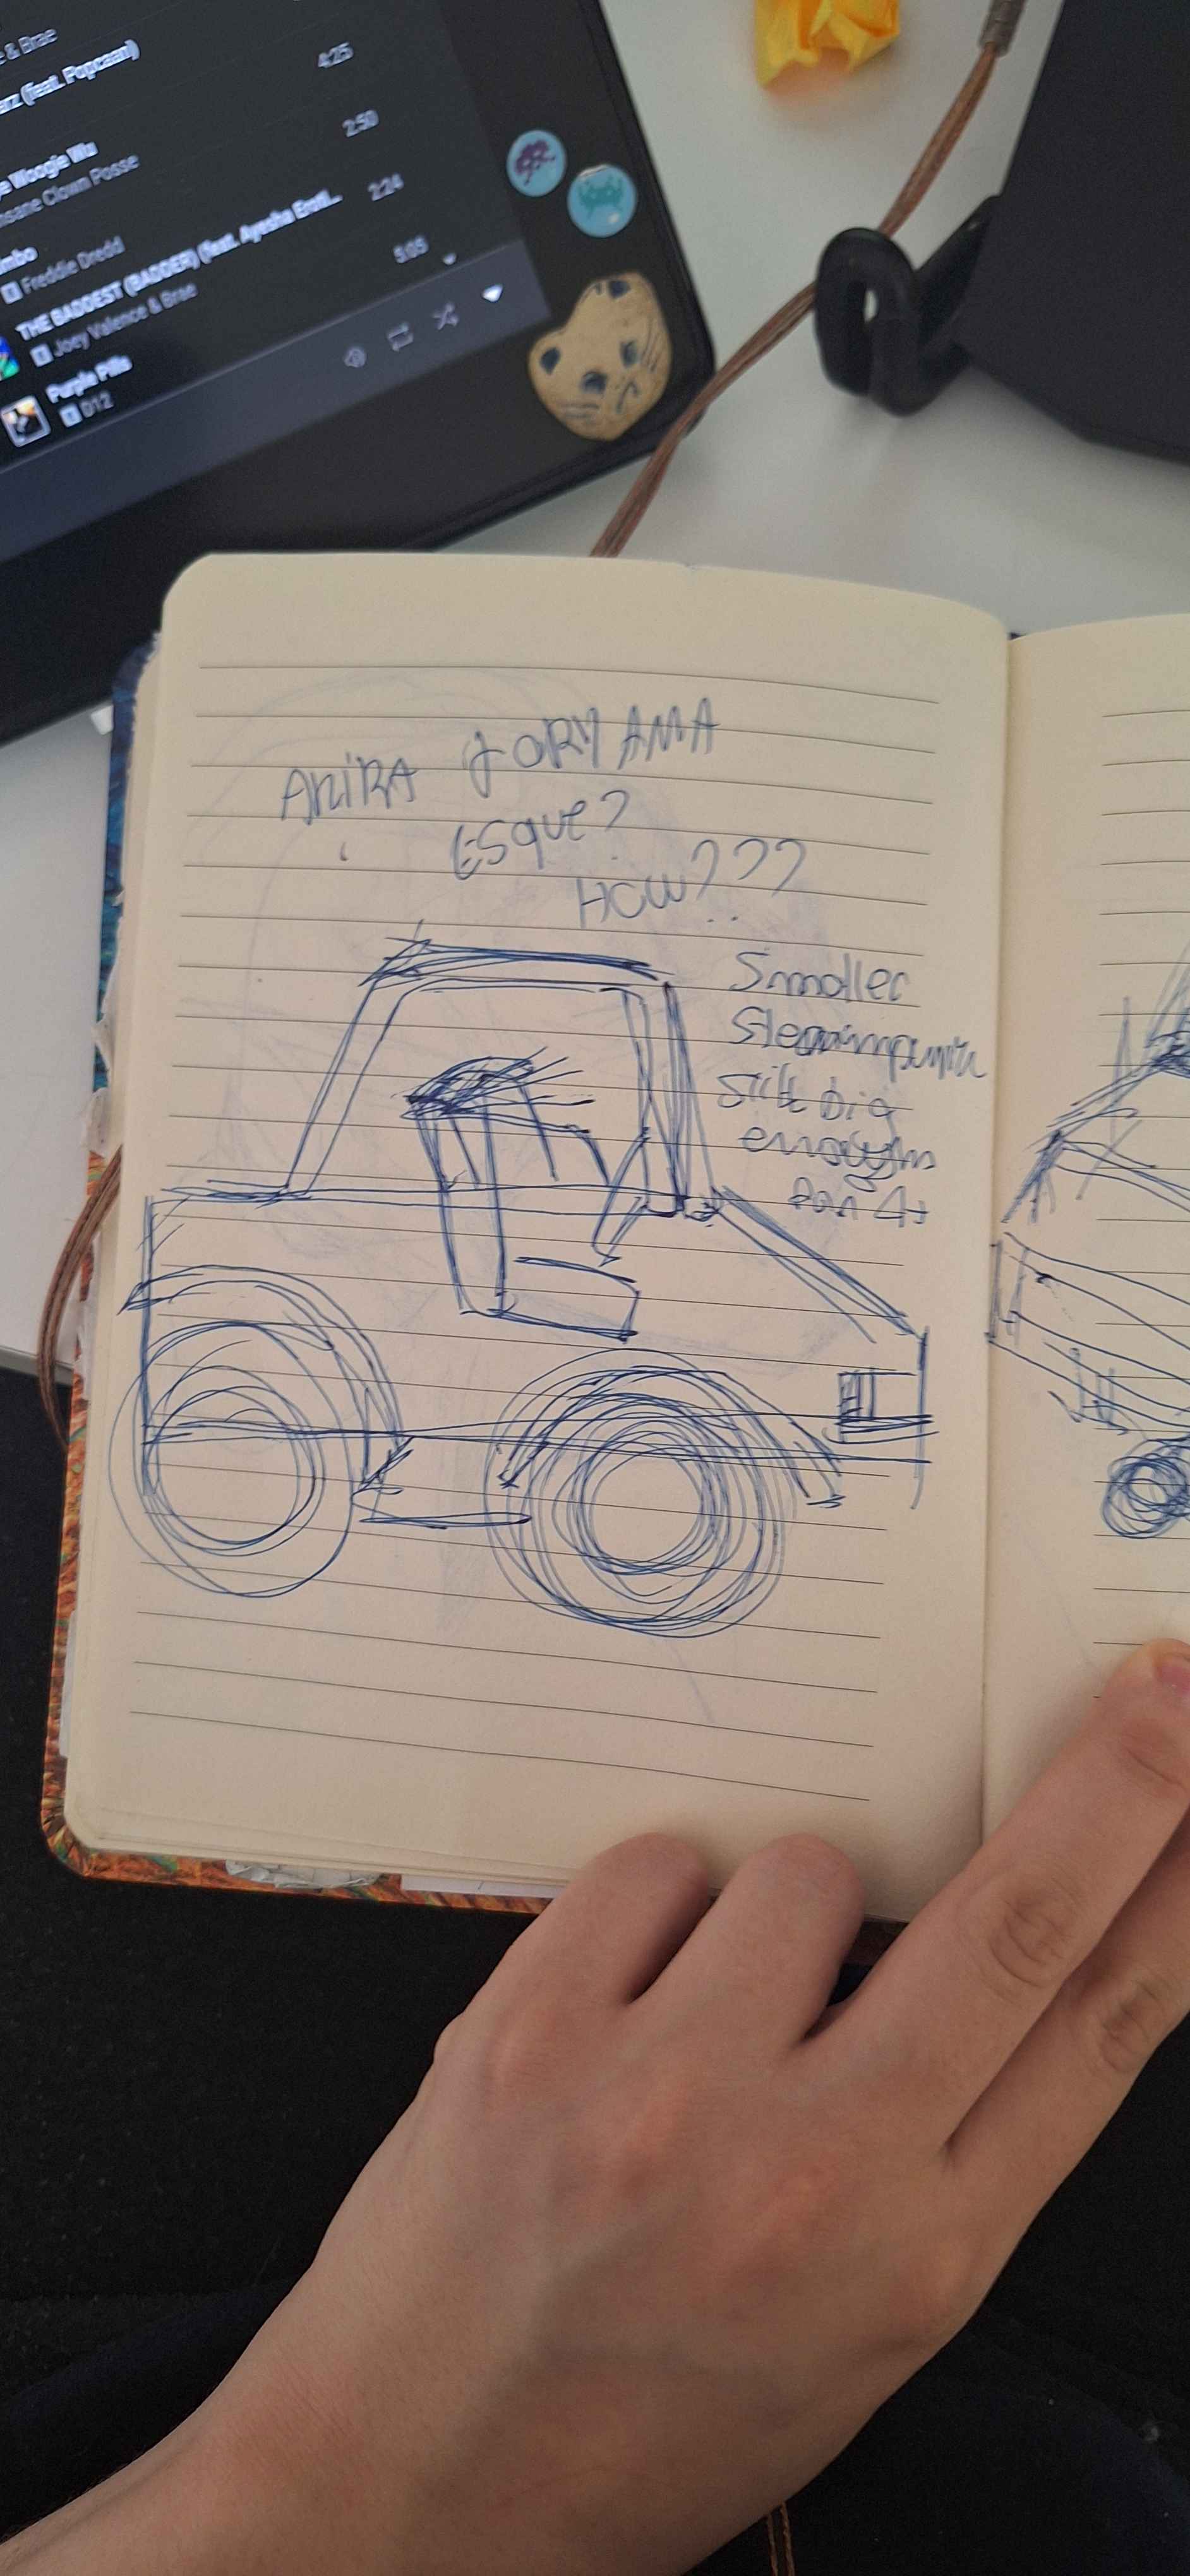 & Brae
(feat. Popcaan)
4:25
Woogie Wu
Insane Clown Posse
2:50
Freddie Dredd
2:24
THE BADDEST (BADDER) (feat. Ayesha Eroti...
Joey Valence & Brae
5:05
Purple Pills
D12
AKIRA TORYAMA
ESque?
HOW???
Smaller
Steampunk
Still big
enough
for 4+